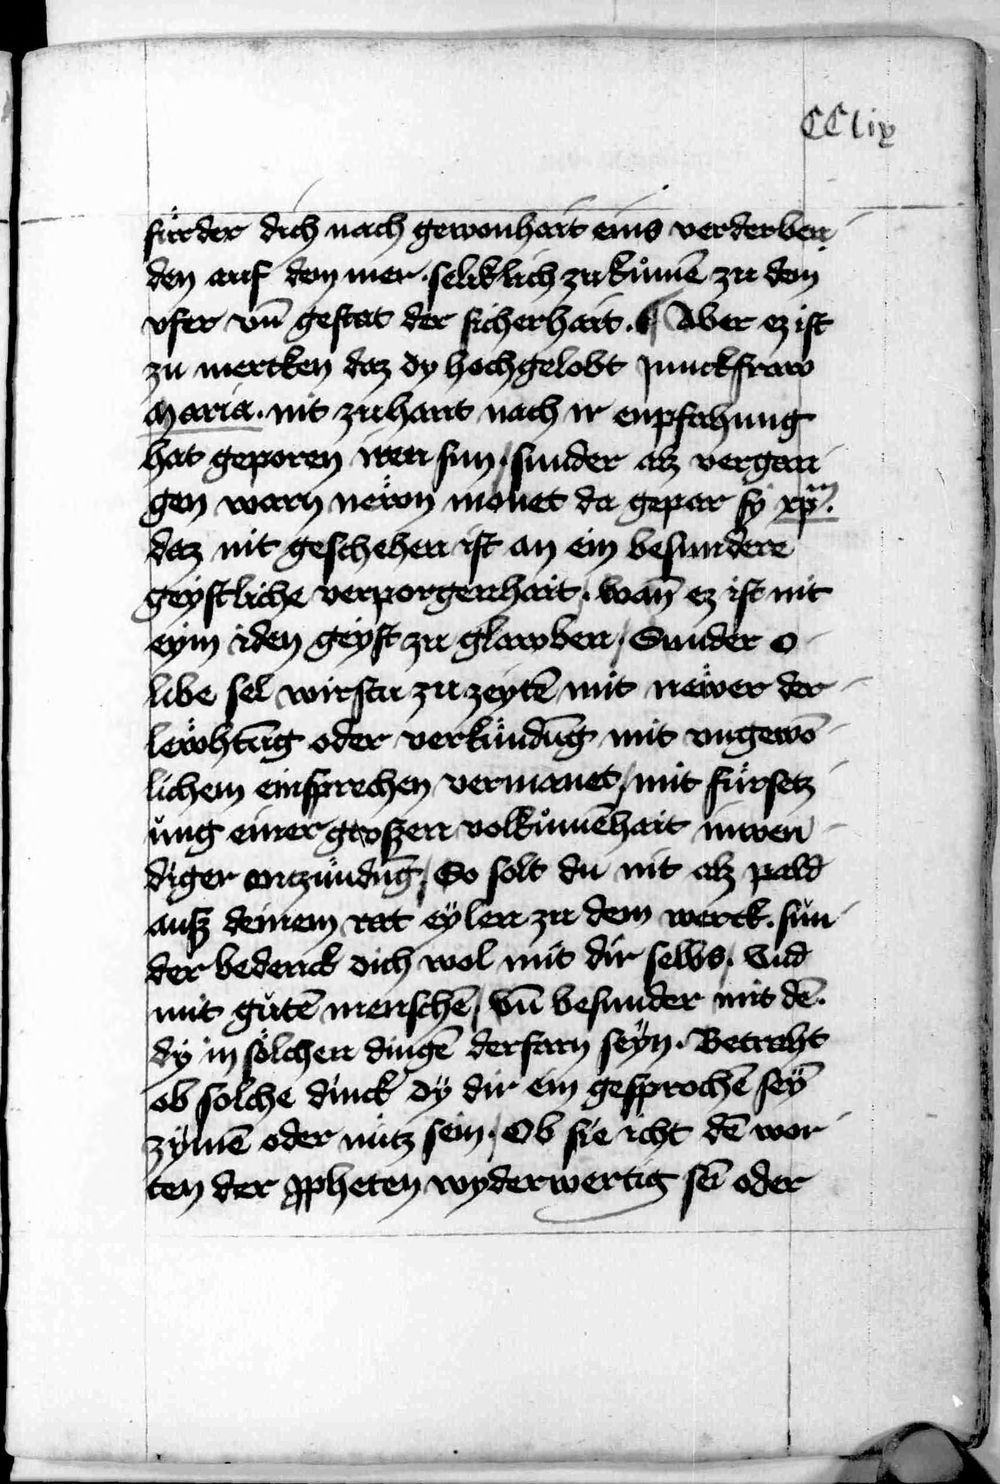 CClix
fürder dich nach gewonhait eins verderben
den auf dem mer · seliklich zu kümē zu dem
vfer vn̄ gestat der sicherhait . ¶ Aber ez ist
zu mercken daz dy hochgelobt junckfraw
maria · nit zuhant nach ir enpfahung
hat geporen iren sun / sunder alz vergan
gen warn newn monet da gepar sy xp̄m .
daz nit geschehen ist an ein besundere
geystliche verporgenhait / wan̄ ez ist nit
eym iden geyst zu glawben / Sunder o
libe sel wirstu zu zeytē mit newer der
lewhtūg oder verkündūg mit vngewō
lichem einsprechen vermanet / mit fürsetz
ung einer groszen volkumēhait inwen
diger anzündūg / So solt du nit alz pald
ausz deinem rat eylen zu dem werck . sun
der bedenck dich wol mit dir selbs / Vnd
mit gutē menschē / vn̄ besunder mit dē .
dy in sölchen dingē derfarn seyn . Betraht
ob solche dinck dy dir ein gesprochē sey
zymē oder nutz sein / Ob sie icht dē wor
ten der ꝓpheten wyderwertig sei oder